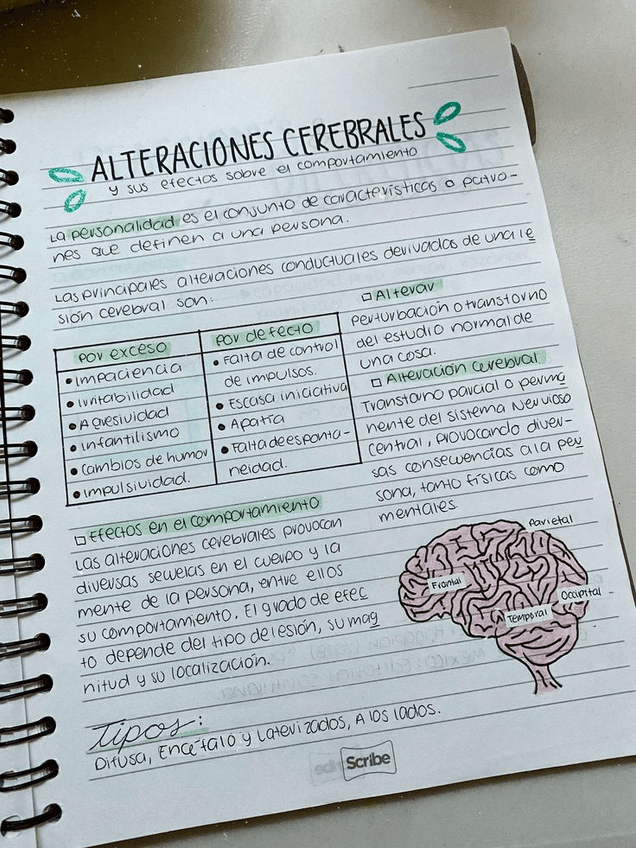 ALTERACIONES CEREBRALES
y sus efectos sobre el comportamiento
La personalidad es el conjunto de características o patro-
nes que definen a una persona.
Las principales alteraciones conductuales derivadas de una le
sión cerebral son:
por exceso
• Impaciencia
• Irritabilidad
• Agresividad
• Infantilismo
• cambios de humor
• Impulsividad.
por defecto
• Falta de control
de impulsos.
• Escasa iniciativa
• Apatía
• Falta de esponta-
neidad.
□ Alterar
Perturbación o transtorno
del estudio normal de
una cosa.
□ Alteración cerebral
Transtorno parcial o perma
nente del sistema Nervioso
central, provocando diver-
sas consecuencias a la per
sona, tanto físicas como
mentales.
□ Efectos en el comportamiento
Las alteraciones cerebrales provocan
diversas secuelas en el cuerpo y la
mente de la persona, entre ellos
su comportamiento. El grado de efec
to depende del tipo de lesión, su mag
nitud y su localización.
Frontal
Parietal
Occipital
Temporal
Tipos:
Difusa, Encéfalo y Laterizados, A los lados.
Scribe